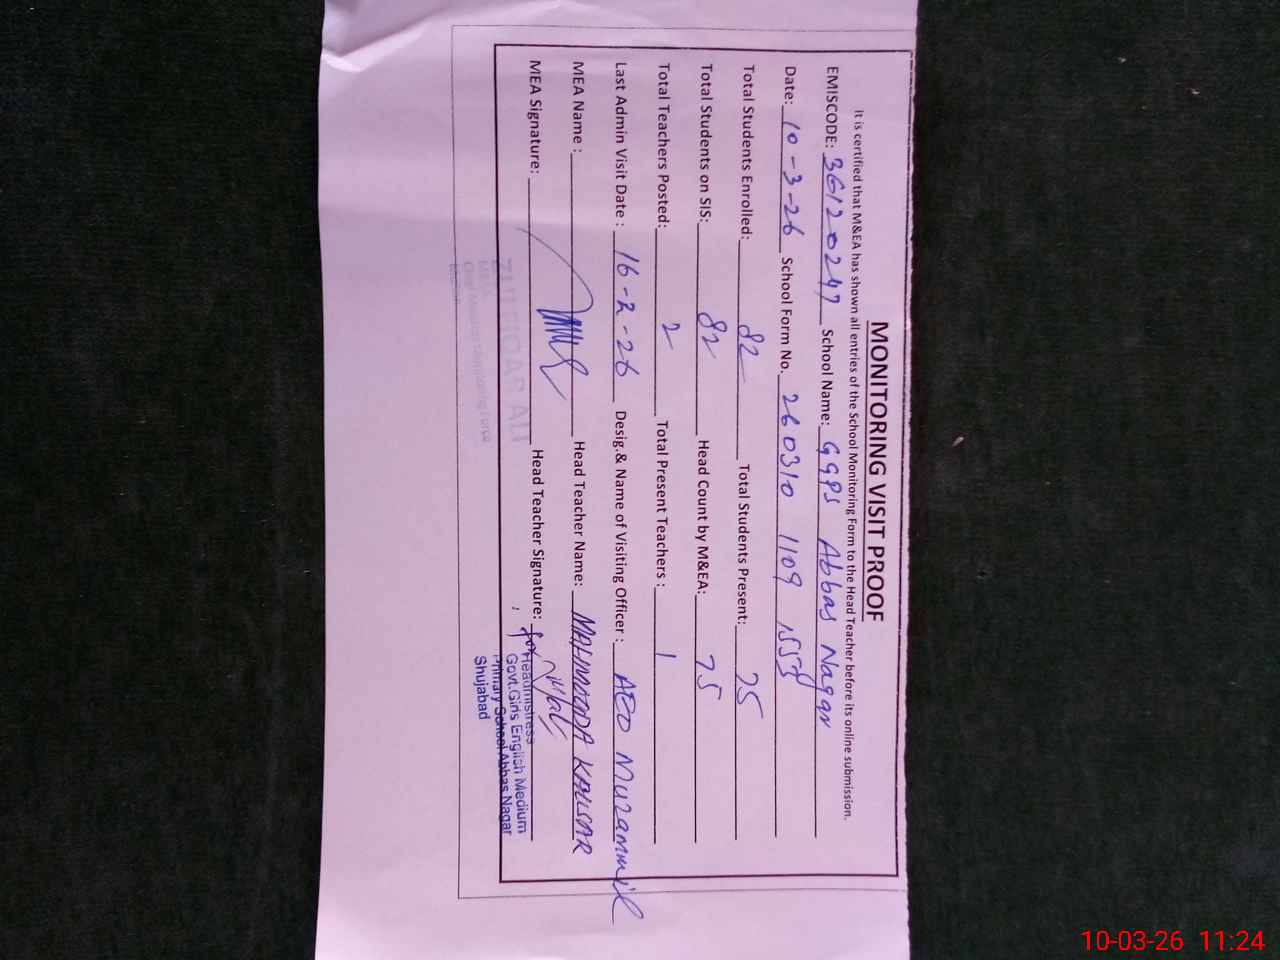 MONITORING VISIT PROOF
It is certified that M&EA has shown all entries of the School Monitoring Form to the Head Teacher before its online submission.
EMISCODE: 36120247 School Name: GGPS Abbas Nagar
Date: 10-3-26 School Form No. 260310 1109 1557
Total Students Enrolled: 82 Total Students Present: 75
Total Students on SIS: 82 Head Count by M&EA: 75
Total Teachers Posted: 2 Total Present Teachers : 1
Last Admin Visit Date : 16-2-26 Desig.& Name of Visiting Officer : AEO Muzammil
MEA Name : Head Teacher Name: MAHMOODA KAUSAR
MEA Signature: Head Teacher Signature: for
ZULFIQAR ALI
Headmistress
Govt.Girls English Medium
Primary School Abbas Nagar
Shujabad
10-03-26 11:24